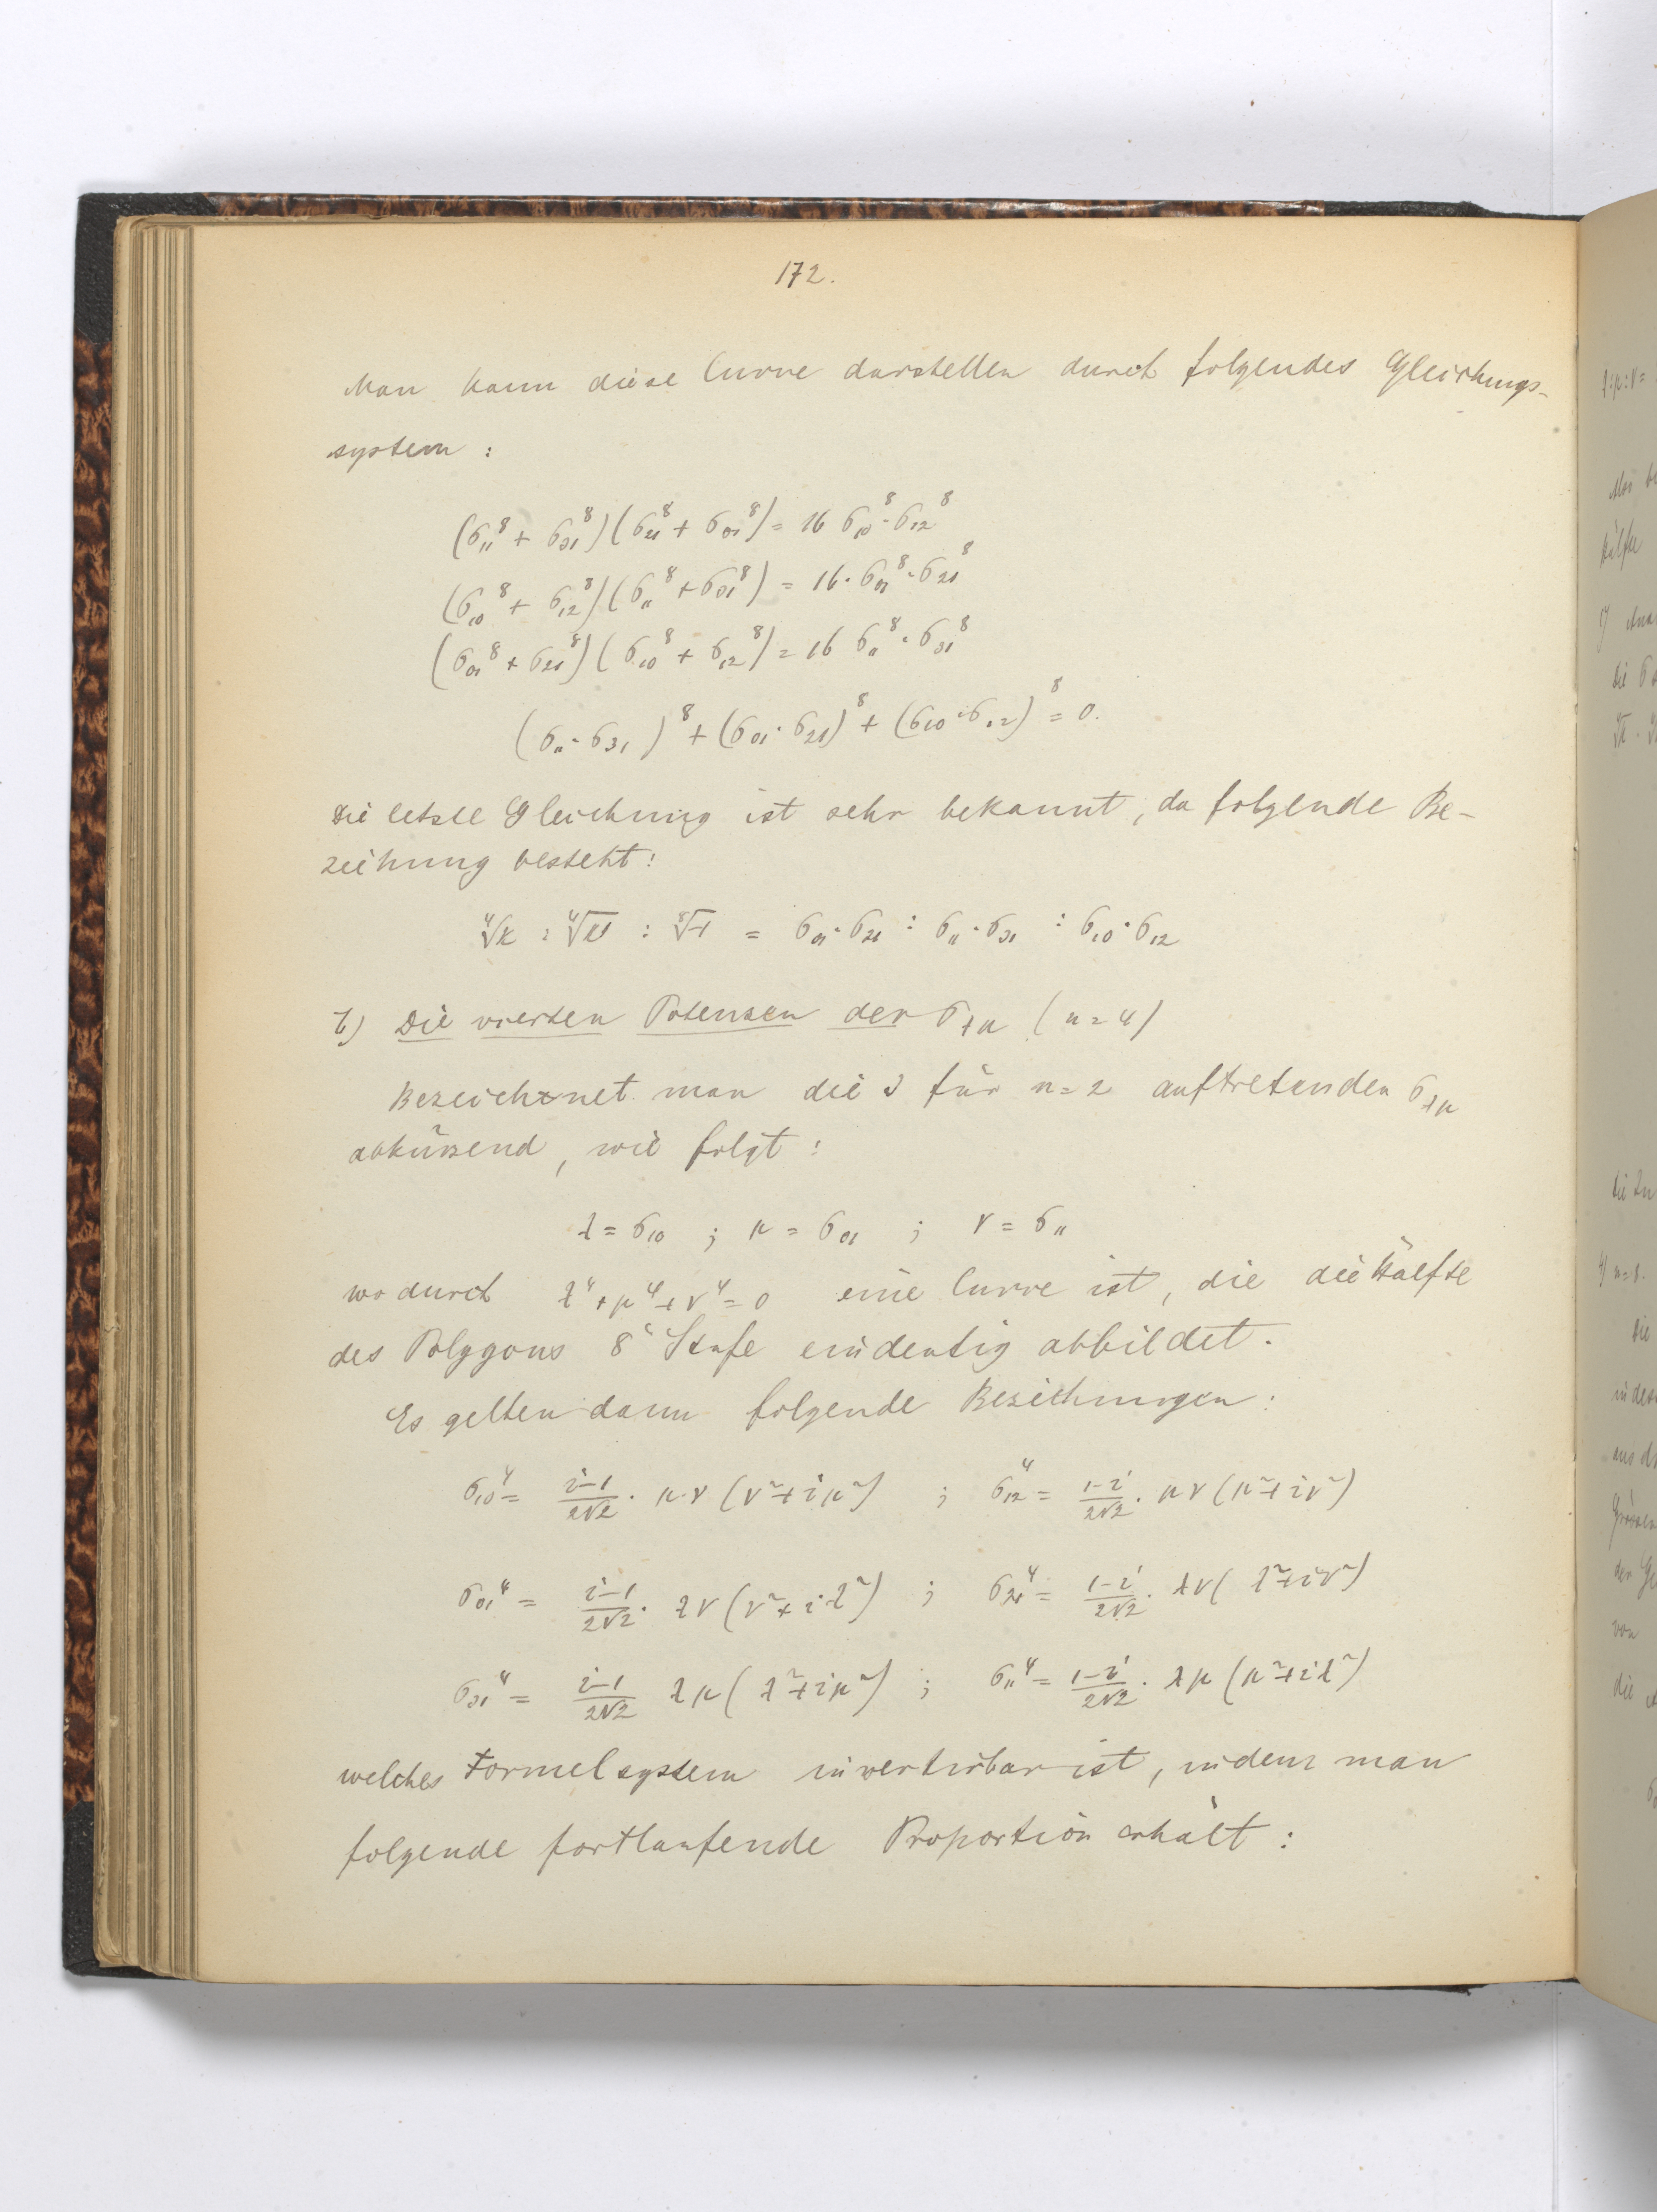 172.
Man kann diese Curve darstellen durch folgendes Gleichungs-
system :
(σ₁₁⁸ + σ₃₁⁸)(σ₂₁⁸ + σ₀₁⁸) = 16 σ₁₀⁸·σ₁₂⁸
(σ₁₀⁸ + σ₁₂⁸)(σ₁₁⁸ + σ₃₁⁸) = 16·σ₀₁⁸·σ₂₁⁸
(σ₀₁⁸ + σ₂₁⁸)(σ₁₀⁸ + σ₁₂⁸) = 16 σ₁₁⁸·σ₃₁⁸
(σ₁₁·σ₃₁)⁸ + (σ₀₁·σ₂₁)⁸ + (σ₁₀·σ₁₂)⁸ = 0.
Die letzte Gleichung ist sehr bekannt, da folgende Be-
ziehung besteht:
⁴√k : ⁴√k' : ⁸√-1 = σ₀₁·σ₂₁ : σ₁₁·σ₃₁ : σ₁₀·σ₁₂
b) Die vierten Potenzen der σλμ (n=4)
Bezeichnet man die 3 für n=2 auftretenden σλμ
abkürzend, wie folgt:
λ = σ₁₀ ; μ = σ₀₁ ; ν = σ₁₁
wodurch λ⁴+μ⁴+ν⁴=0 eine Curve ist, die die Hälfte
des Polygons 8ͭ Stufe eindeutig abbildet.
Es gelten dann folgende Beziehungen:
σ₁₀⁴ = (i-1)/(2√2) · μ·ν (ν²+iμ²) ; σ₁₂⁴ = (1-i)/(2√2) · μν (μ²+iν²)
σ₀₁⁴ = (i-1)/(2√2) · λν (ν²+iλ²) ; σ₂₁⁴ = (1-i)/(2√2) · λν (λ²+iν²)
σ₃₁⁴ = (i-1)/(2√2) λμ (λ²+iμ²) ; σ₁₁⁴ = (1-i)/(2√2) · λμ (μ²+iλ²)
welches Formelsystem invertirbar ist, indem man
folgende fortlaufende Proportion erhält :